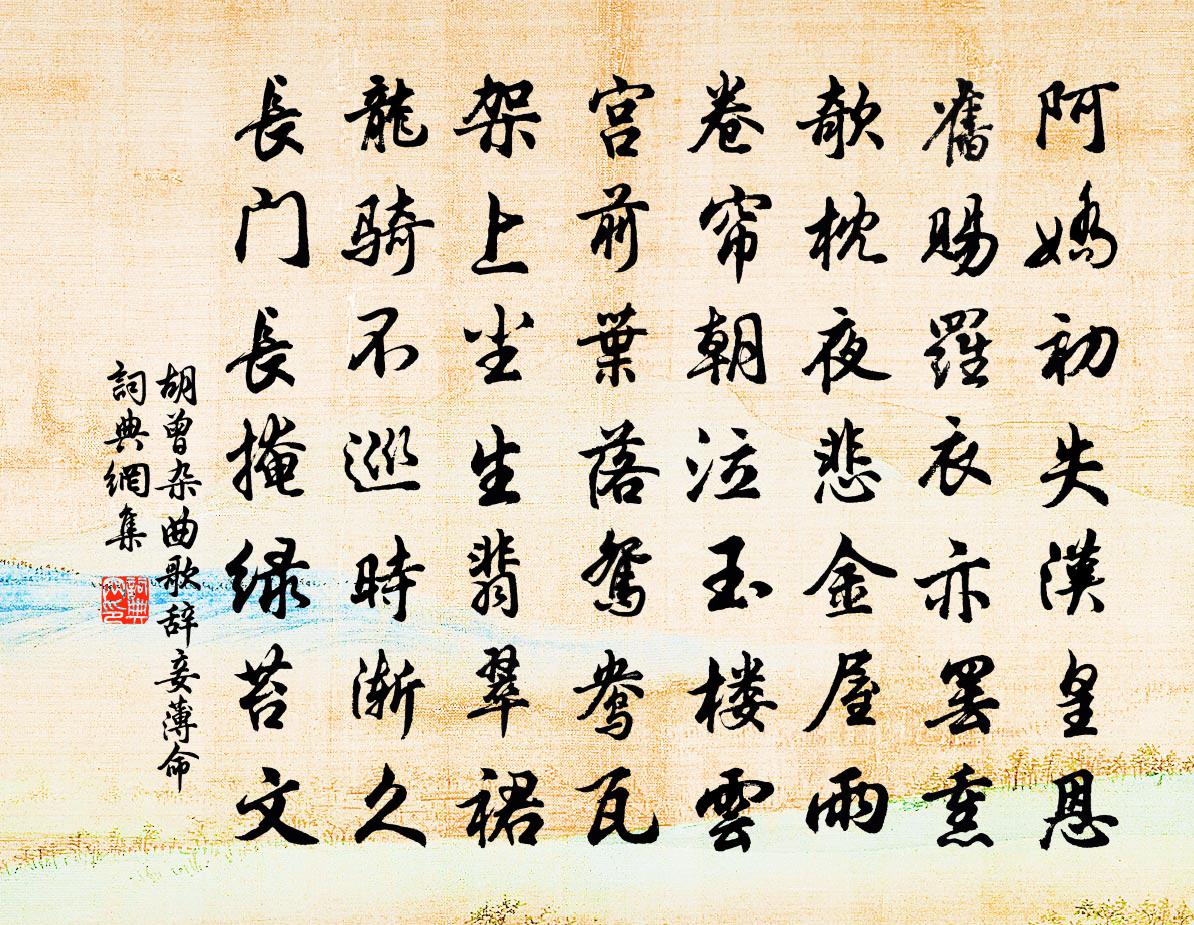 阿嬌初失漢皇恩
舊賜羅衣亦罢熏
欹枕夜悲金屋雨
卷帘朝泣玉楼雲
宫前葉落鸳鸯瓦
架上尘生翡翠裙
龍骑不巡時渐久
長门長掩绿苔文
胡曾杂曲歌辞妾薄命
詞典網集